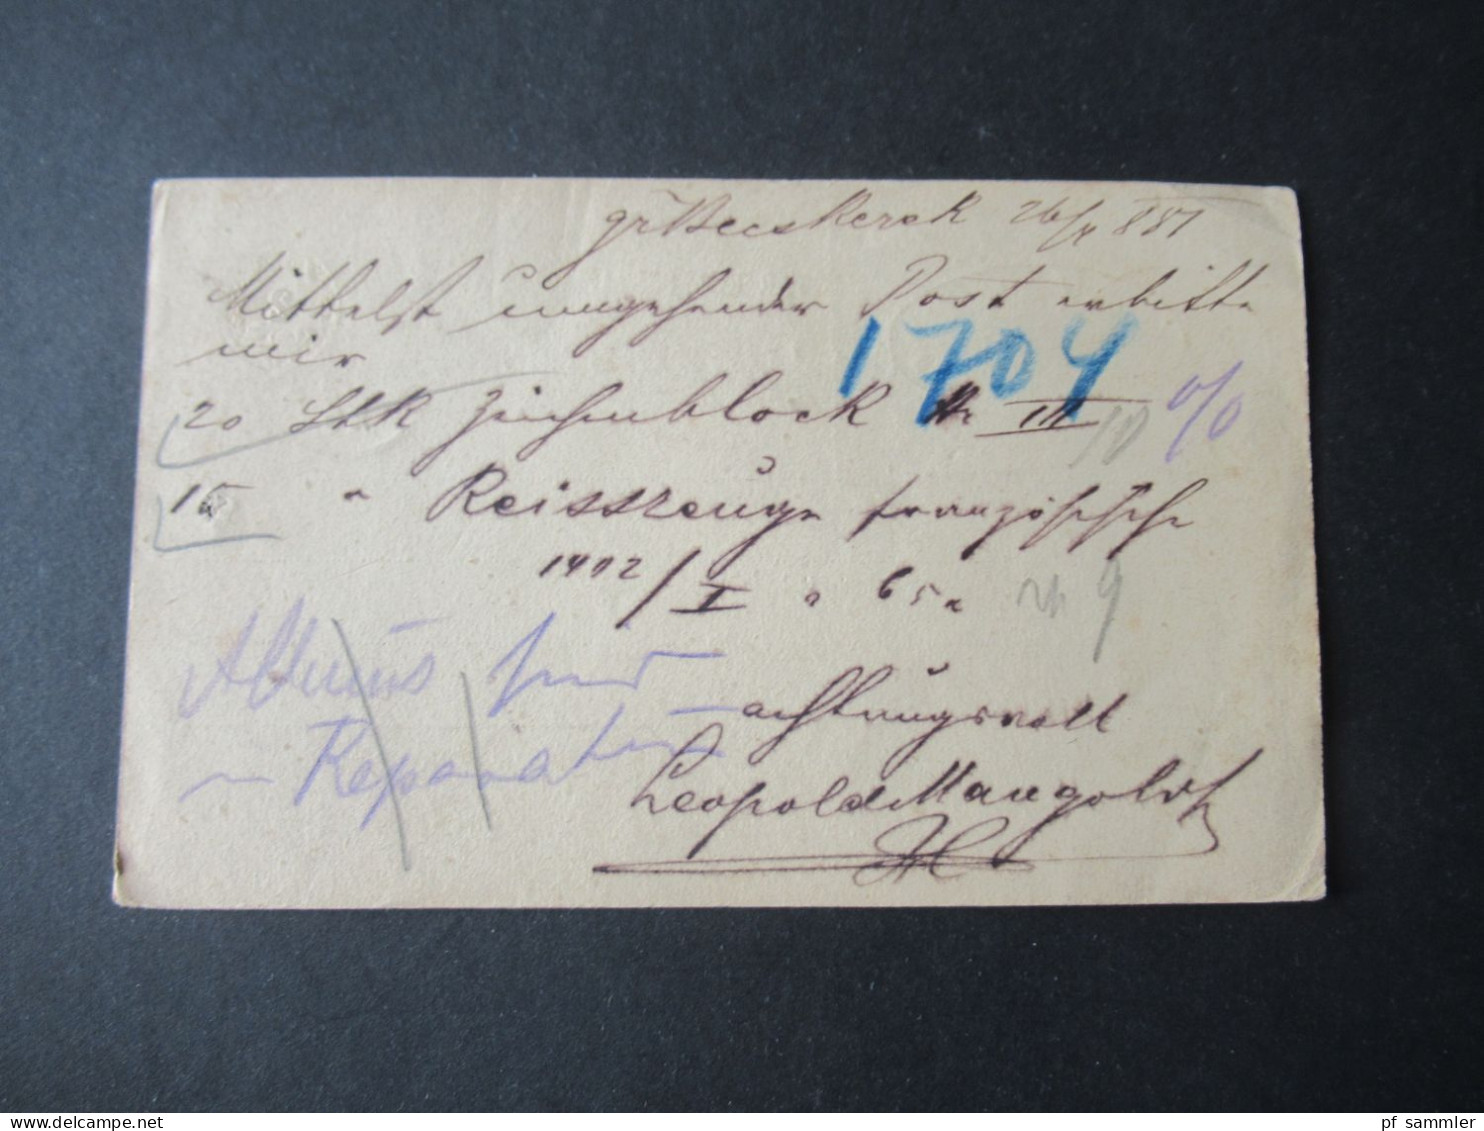 gr Becskerek 26/X 887
Mittelst umgehender Post erbitte
mir
1704
20 Stk Zeichenblock No III %
15 " Reisszeuge französische
1492/I a 65 x
9
Reparatur
achtungsvoll
Leopold Mangold
pf sammler